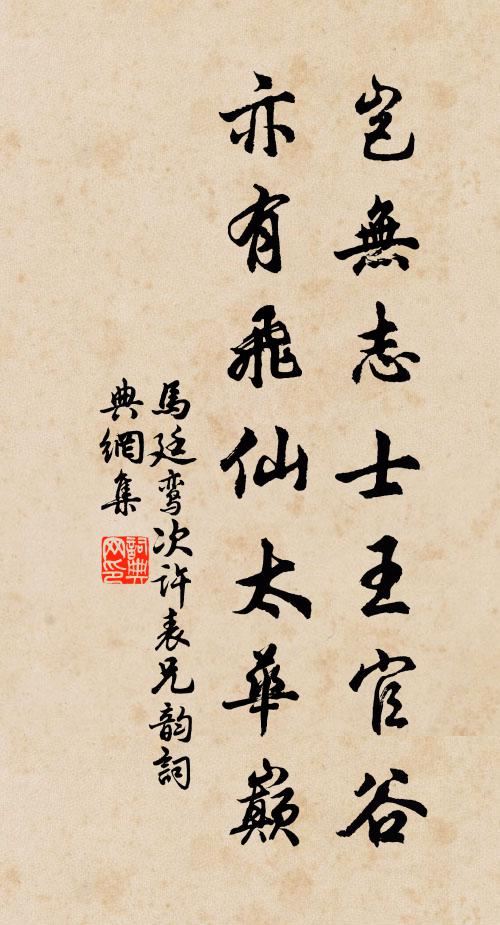 豈無志士王官谷
亦有飛仙太華巔
馬廷鸞次許表兄韵詞
典網集
詞典
网印